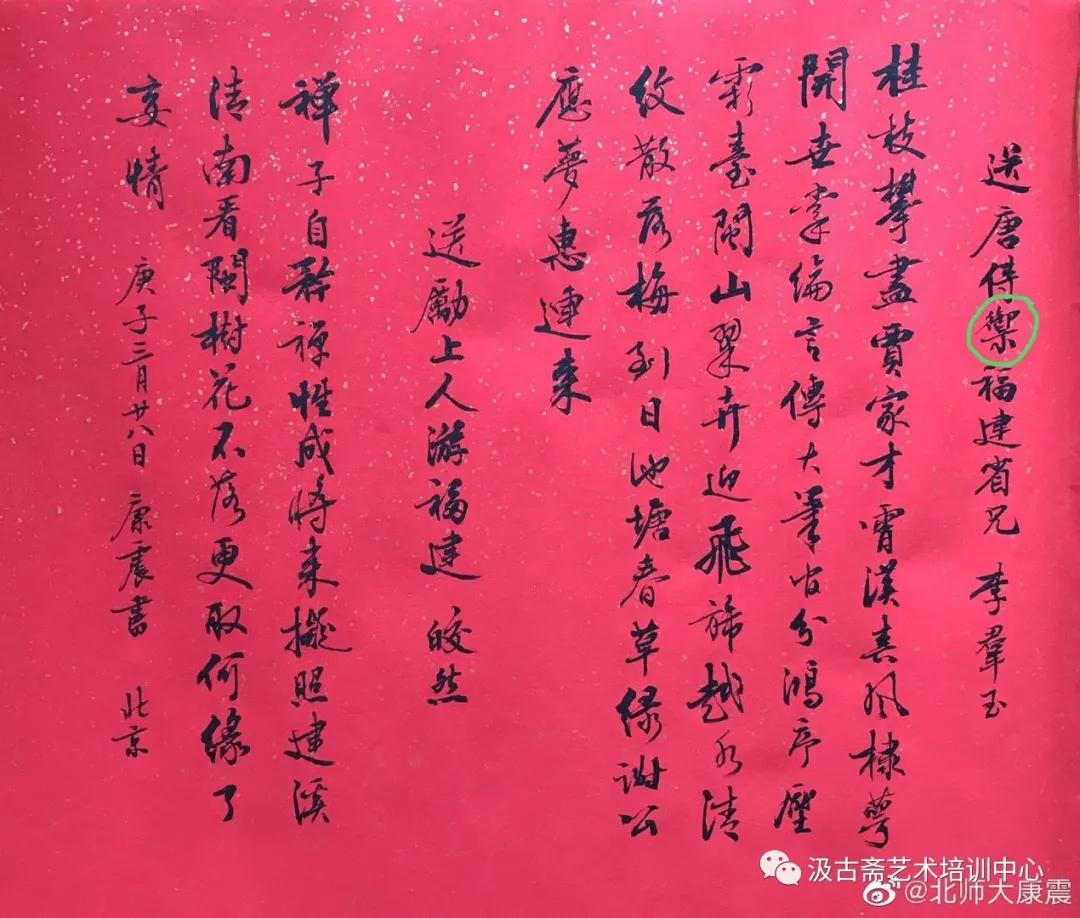 送唐侍禦福建省兄 李羣玉
桂枝攀盡賈家才霄漢春風棣萼
開世掌綸言傳大筆官分鴻序壓
霜臺閩山翠卉迎飛旆越水清
紋散落梅到日池塘春草綠謝公
應夢惠連來
送勵上人游福建 皎然
禅子自矜禅性成將來擬照建溪
清南看閩樹花不落更取何緣了
妄情 庚子三月廿八日 康震書 北京
汲古斋艺术培训中心
@北师大康震